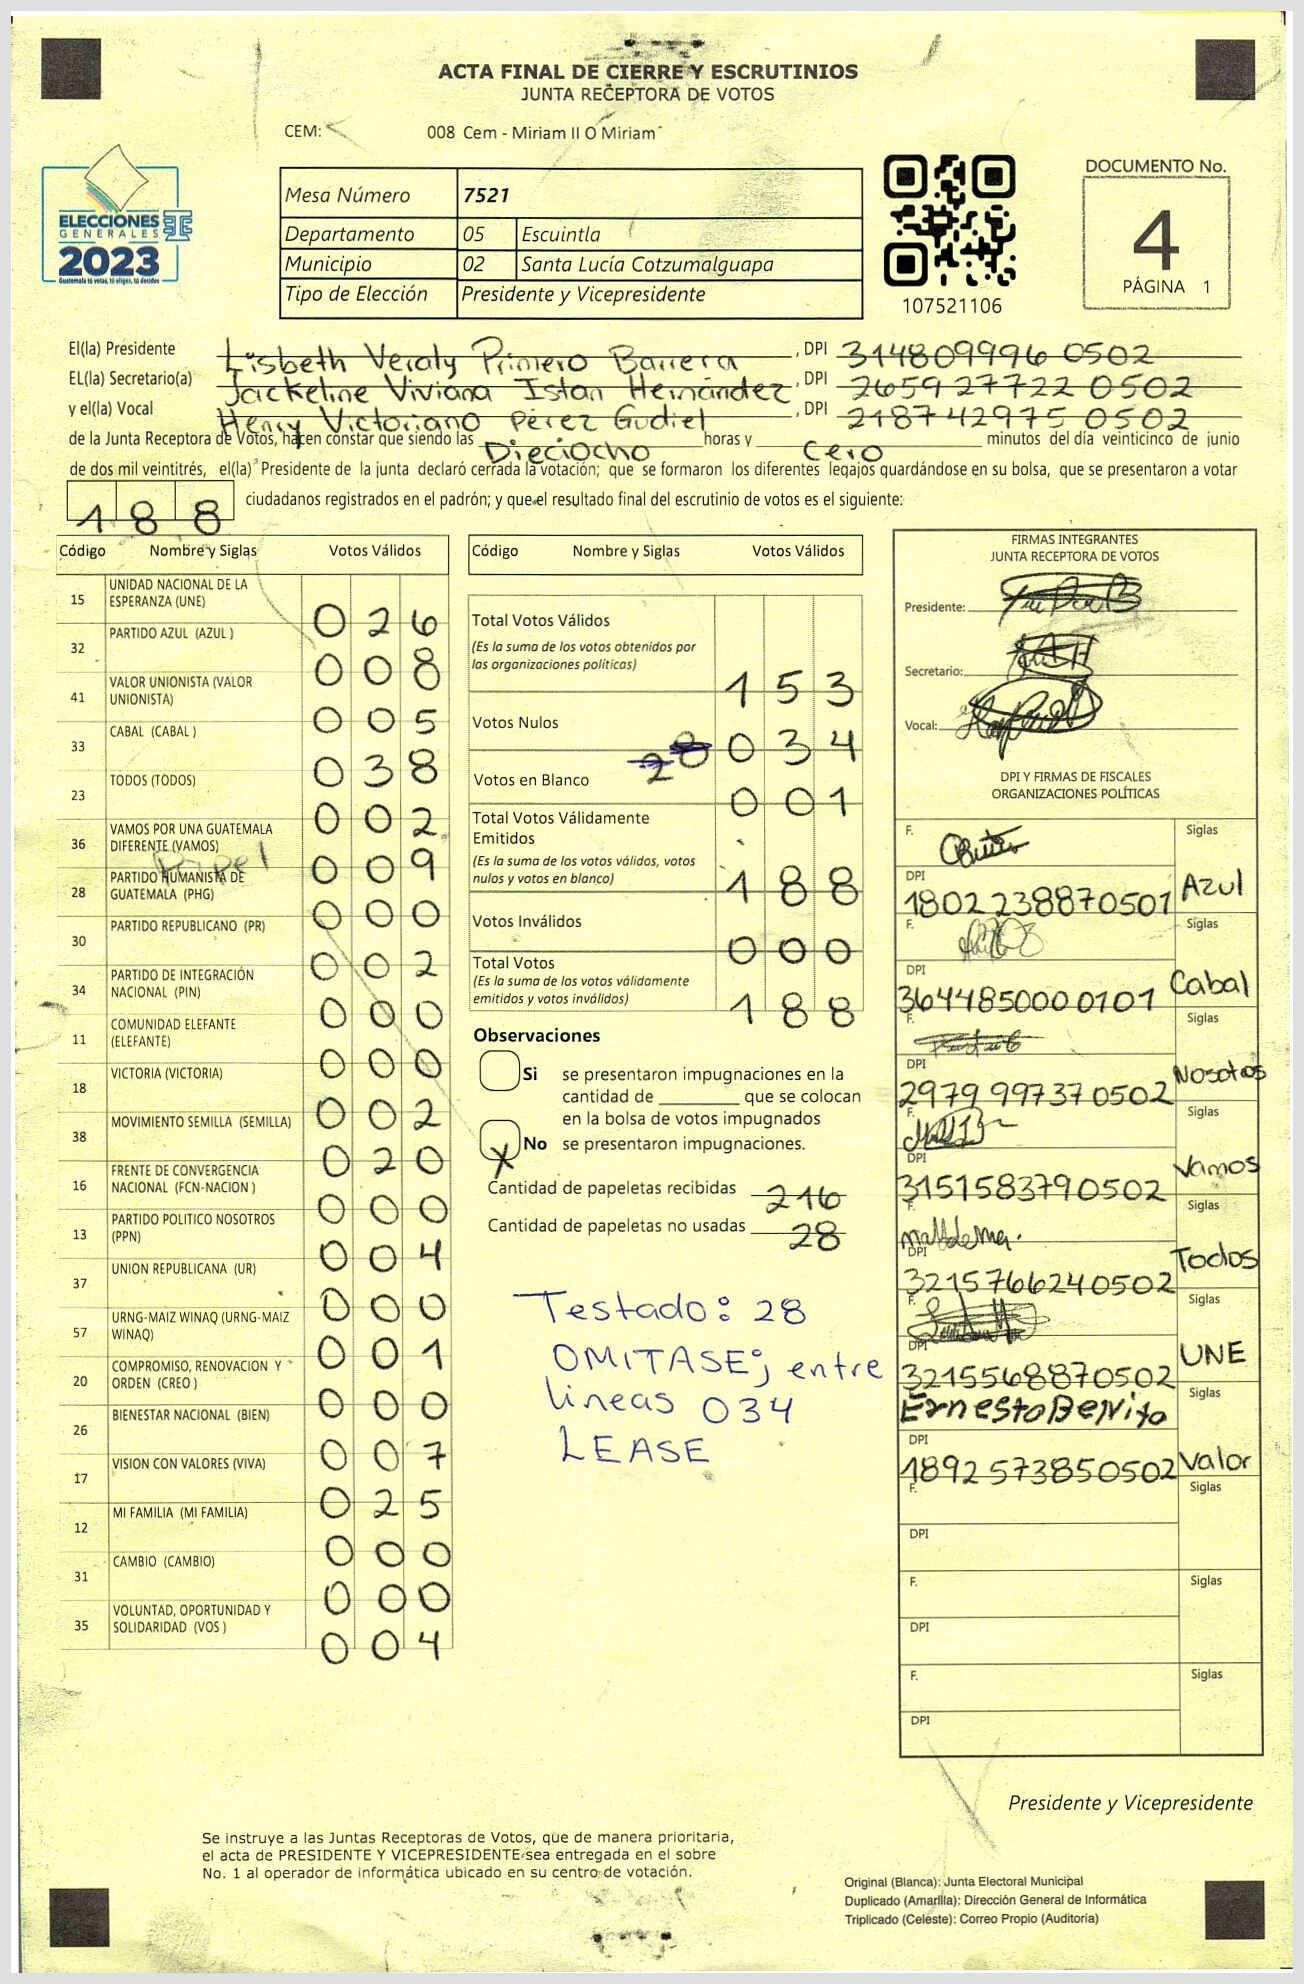 ACTA FINAL DE CIERRE Y ESCRUTINIOS
JUNTA RECEPTORA DE VOTOS
CEM: 008 Cem - Miriam II O Miriam
ELECCIONES
GENERALES
2023
Guatemala tú votas, tú eliges, tú decides
Mesa Número 7521
Departamento 05 Escuintla
Municipio 02 Santa Lucía Cotzumalguapa
Tipo de Elección Presidente y Vicepresidente
107521106
DOCUMENTO No.
4
PÁGINA 1
El(la) Presidente Lisbeth Veraly Primero Barrera, DPI 314809996 0502
EL(la) Secretario(a) Jackeline Viviana Istan Hernández, DPI 265927722 0502
y el(la) Vocal Henry Victoriano Pérez Gudiel, DPI 218742975 0502
de la Junta Receptora de Votos, hacen constar que siendo las Dieciocho horas y Cero minutos del día veinticinco de junio
de dos mil veintitrés, el(la) Presidente de la junta declaró cerrada la votación; que se formaron los diferentes legajos guardándose en su bolsa, que se presentaron a votar
188 ciudadanos registrados en el padrón; y que el resultado final del escrutinio de votos es el siguiente:
Código Nombre y Siglas Votos Válidos
15 UNIDAD NACIONAL DE LA ESPERANZA (UNE) 026
32 PARTIDO AZUL (AZUL ) 008
41 VALOR UNIONISTA (VALOR UNIONISTA) 005
33 CABAL (CABAL ) 038
23 TODOS (TODOS) 002
36 VAMOS POR UNA GUATEMALA DIFERENTE (VAMOS) 009
28 PARTIDO HUMANISTA DE GUATEMALA (PHG) 000
30 PARTIDO REPUBLICANO (PR) 002
34 PARTIDO DE INTEGRACIÓN NACIONAL (PIN) 000
11 COMUNIDAD ELEFANTE (ELEFANTE) 000
18 VICTORIA (VICTORIA) 002
38 MOVIMIENTO SEMILLA (SEMILLA) 020
16 FRENTE DE CONVERGENCIA NACIONAL (FCN-NACION ) 000
13 PARTIDO POLITICO NOSOTROS (PPN) 004
37 UNION REPUBLICANA (UR) 000
57 URNG-MAIZ WINAQ (URNG-MAIZ WINAQ) 001
20 COMPROMISO, RENOVACION Y ORDEN (CREO ) 000
26 BIENESTAR NACIONAL (BIEN) 007
17 VISION CON VALORES (VIVA) 025
12 MI FAMILIA (MI FAMILIA) 000
31 CAMBIO (CAMBIO) 000
35 VOLUNTAD, OPORTUNIDAD Y SOLIDARIDAD (VOS ) 004
Código Nombre y Siglas Votos Válidos
Total Votos Válidos 153
(Es la suma de los votos obtenidos por
las organizaciones políticas)
Votos Nulos 28 034
Votos en Blanco 001
Total Votos Válidamente
Emitidos 188
(Es la suma de los votos válidos, votos
nulos y votos en blanco)
Votos Inválidos 000
Total Votos 188
(Es la suma de los votos válidamente
emitidos y votos inválidos)
Observaciones
Si se presentaron impugnaciones en la
cantidad de ________ que se colocan
en la bolsa de votos impugnados
X No se presentaron impugnaciones.
Cantidad de papeletas recibidas 216
Cantidad de papeletas no usadas 28
Testado: 28
OMITASE; entre
lineas 034
LEASE
FIRMAS INTEGRANTES
JUNTA RECEPTORA DE VOTOS
Presidente:
Secretario:
Vocal:
DPI Y FIRMAS DE FISCALES
ORGANIZACIONES POLÍTICAS
F. Siglas
DPI 1802238870501 Azul
F. Siglas
DPI 3644850000101 Cabal
F. Siglas
DPI 2979997370502 Nosotros
F. Siglas
DPI 3151583790502 Vamos
F. Siglas
DPI 3215766240502 Todos
F. Siglas
DPI 3215568870502 UNE
F. Ernesto Benito Siglas
DPI 1892573850502 Valor
F. Siglas
DPI
F. Siglas
DPI
F. Siglas
DPI
Presidente y Vicepresidente
Se instruye a las Juntas Receptoras de Votos, que de manera prioritaria,
el acta de PRESIDENTE Y VICEPRESIDENTE sea entregada en el sobre
No. 1 al operador de informática ubicado en su centro de votación.
Original (Blanca): Junta Electoral Municipal
Duplicado (Amarilla): Dirección General de Informática
Triplicado (Celeste): Correo Propio (Auditoria)